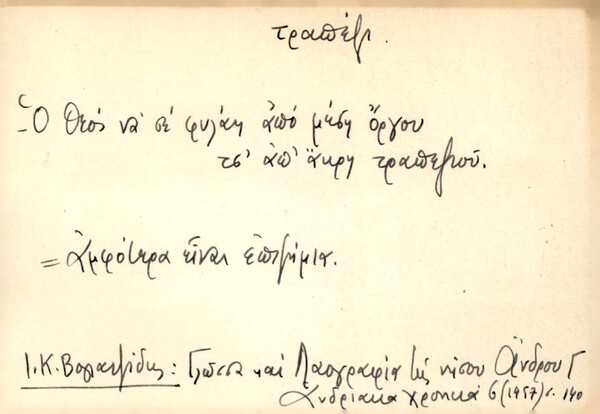 τραπέζι.
Ὁ Θεός νά σέ φυλάη ἀπό μέση ὄργου
τσ' ἀπ' ἄκρη τραπεζιοῦ.
= Ἀμφότερα εἶναι ἐπιζήμια.
Ι. Κ. Βογιατζίδης: Γλῶσσα καί Λαογραφία τῆς νήσου Ἄνδρου Γ
Ἀνδριακά Χρονικά 6 (1957) σ. 140